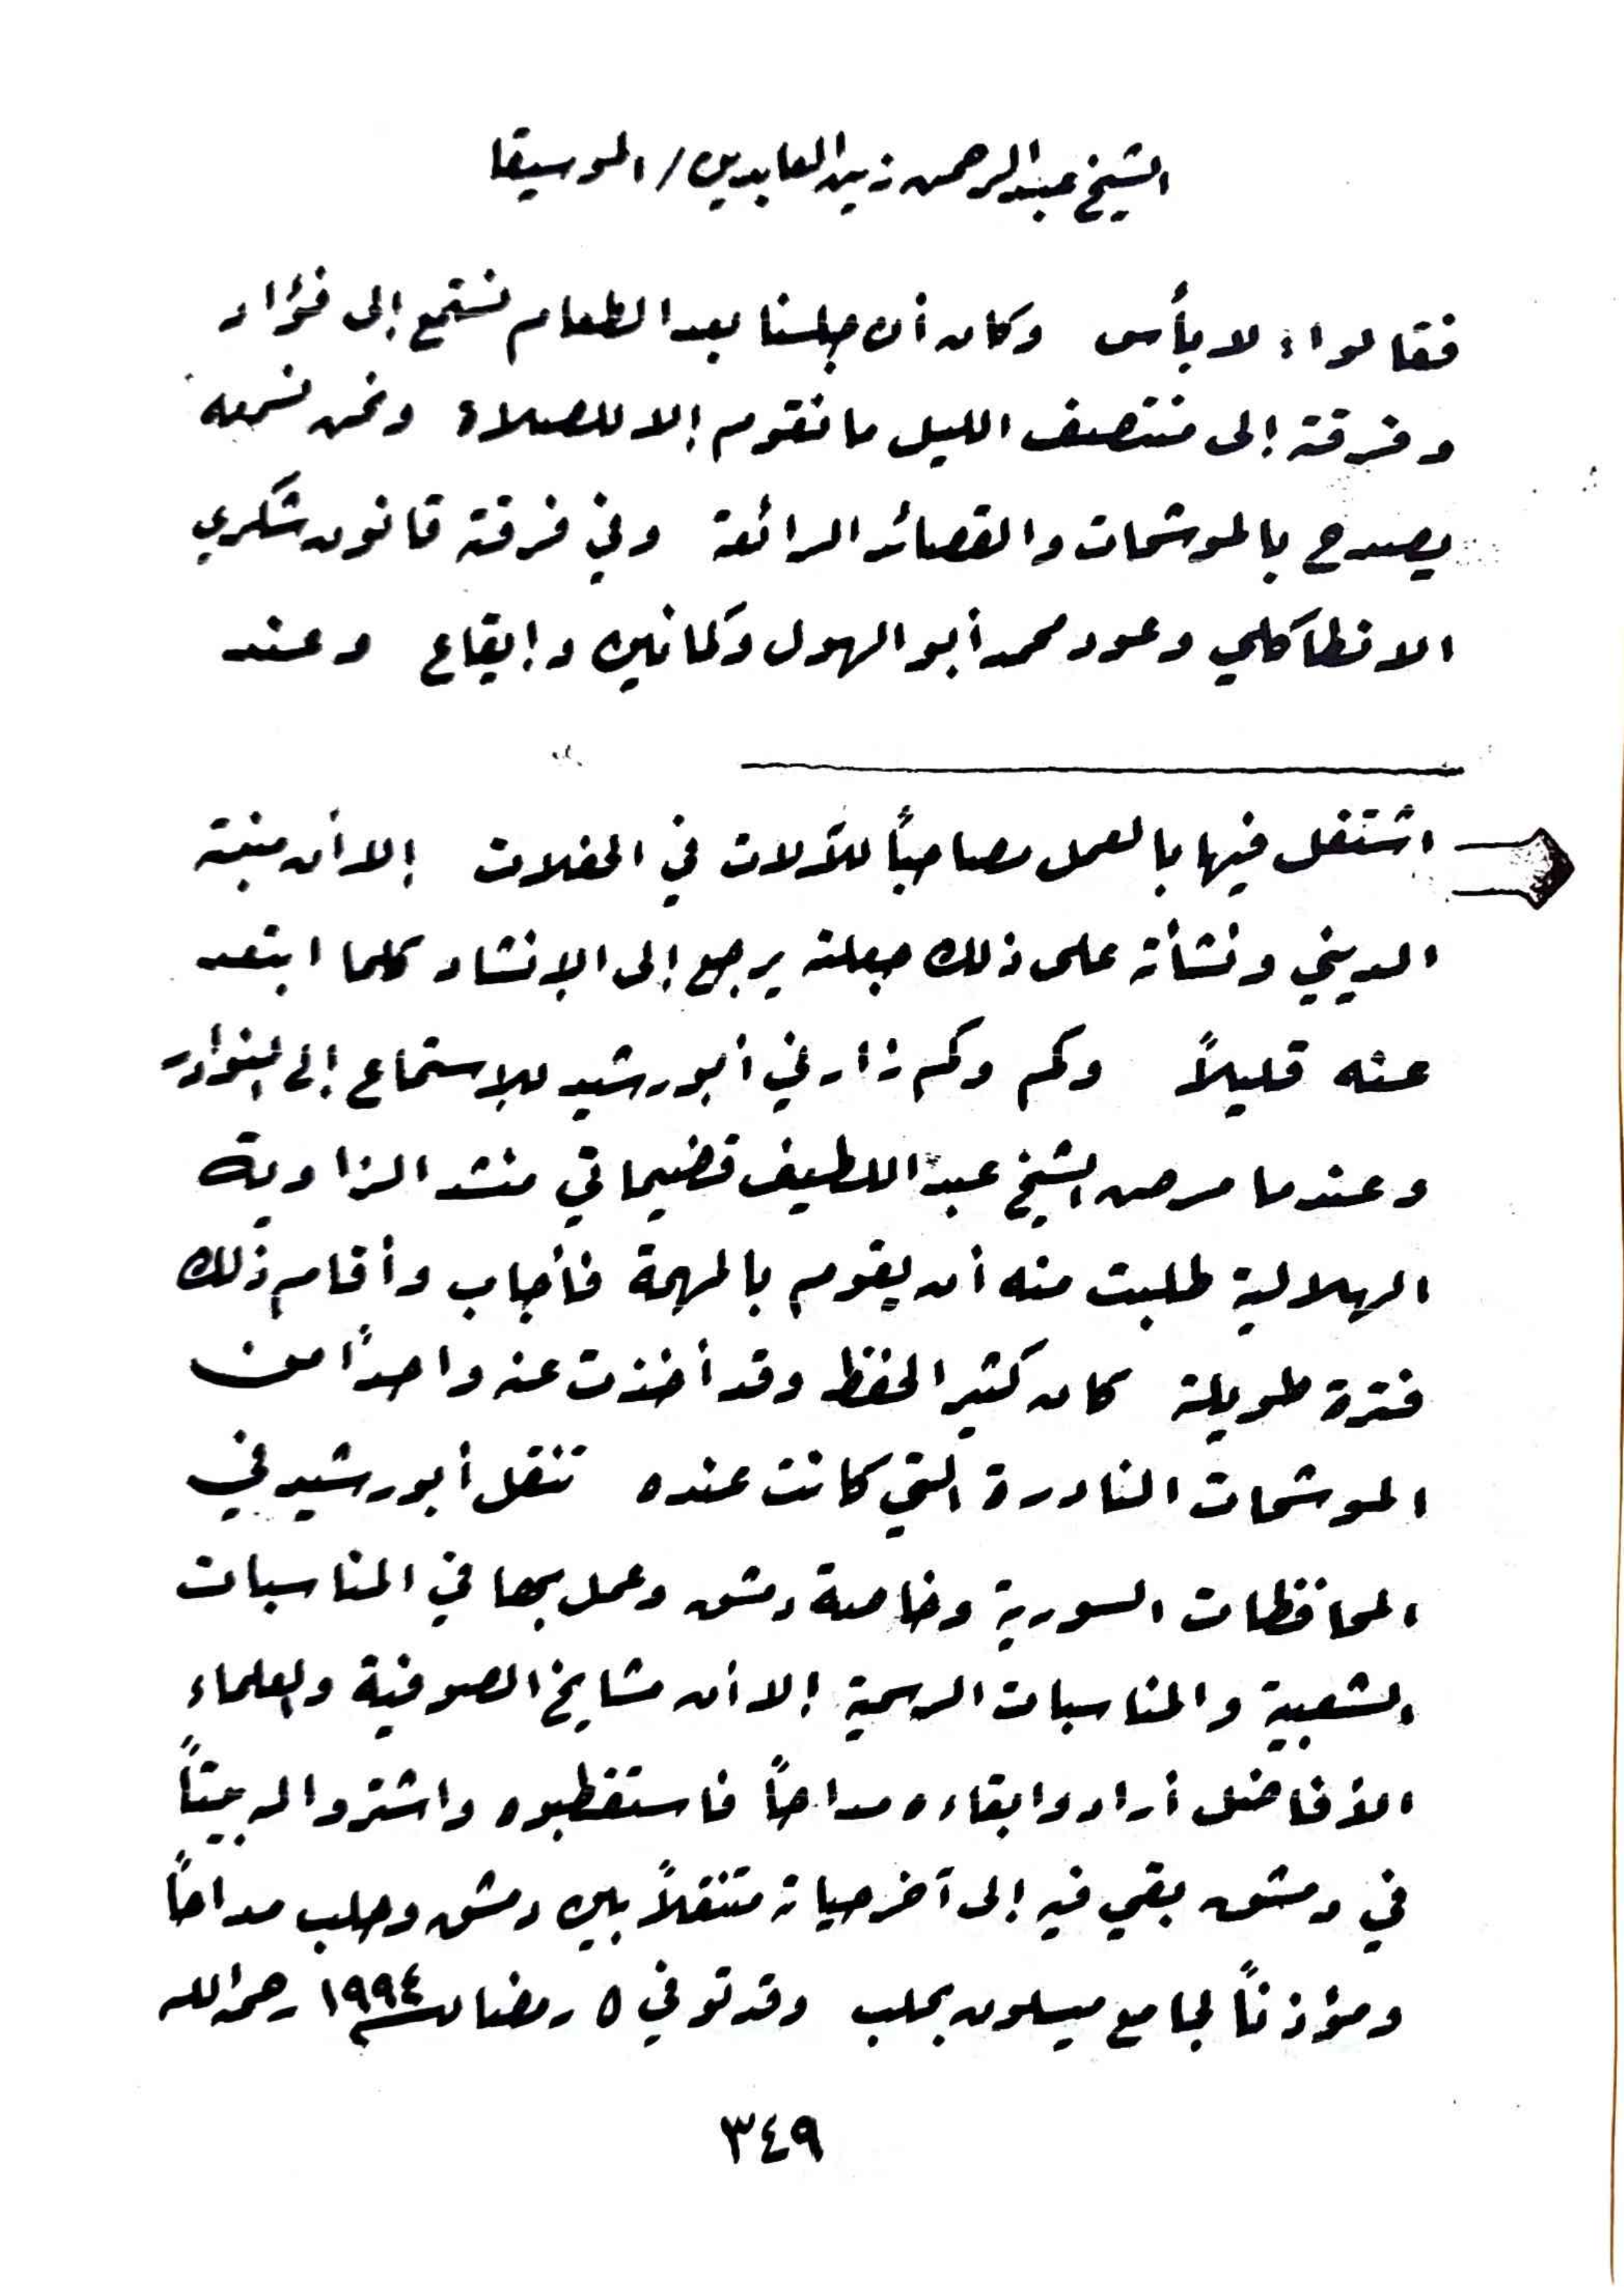 الشيخ عبد الرحمن زين العابدين / الموسيقا
فقالوا: لا بأس وكان أن جلسنا بعد الطعام نستمع إلى فؤاد
وفرقته إلى منتصف الليل ما نقوم إلا للصلاة ونحن نسمعه
يصدح بالموشحات والقصائد الرائعة وفي فرقته قانون شكري
الانطاكلي وعود محمد أبو الهول وكمانين وإيقاع وعند
اشتغل فيها بالعمل مصاحباً للآلات في الحفلات إلا أن منبته
الديني ونشأته على ذلك جعلته يرجع إلى الإنشاد كلما ابتعد
عنه قليلاً وكم وكم زارني أبو رشيد للاستماع إلى النوادر
وعندما مرض الشيخ عبد اللطيف قضيماتي منشد الزاوية
الهلالية طلبت منه أن يقوم بالمهمة فأجاب وأقام ذلك
فترة طويلة كان كثير الحفظ وقد أخذت عنه واحداً من
الموشحات النادرة التي كانت عنده تنقل أبو رشيد في
المحافظات السورية وخاصة دمشق وعمل بها في المناسبات
الشعبية والمناسبات الرسمية إلا أن مشايخ الصوفية والعلماء
الأفاضل أرادوا ابقاءه مداحاً فاستقطبوه واشتروا له بيتاً
في دمشق بقي فيه إلى آخر حياته متنقلاً بين دمشق وحلب مداحاً
ومؤذناً لجامع ميسلون بحلب وقد توفي ٥ رمضان ١٩٩٤م رحمه الله
٣٤٩